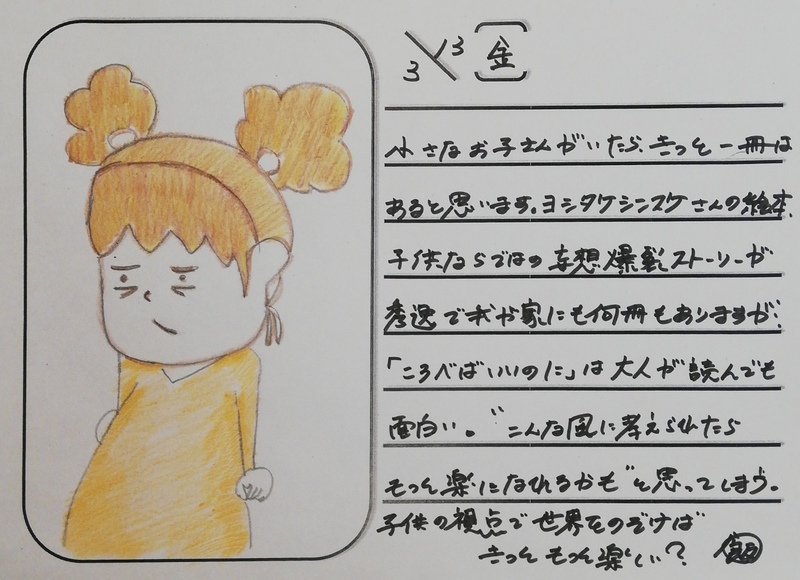 3/13 [金]
小さなお子さんがいたら、きっと一冊は
あると思います。ヨシタケシンスケさんの絵本。
子供ならではの妄想爆裂ストーリーが
秀逸で我が家にも何冊もありますが、
「ころべばいいのに」は大人が読んでも
面白い。“こんな風に考えられたら
もっと楽になれるかも”と思ってしまう。
子供の視点で世界をのぞけば
きっともっと楽しい?